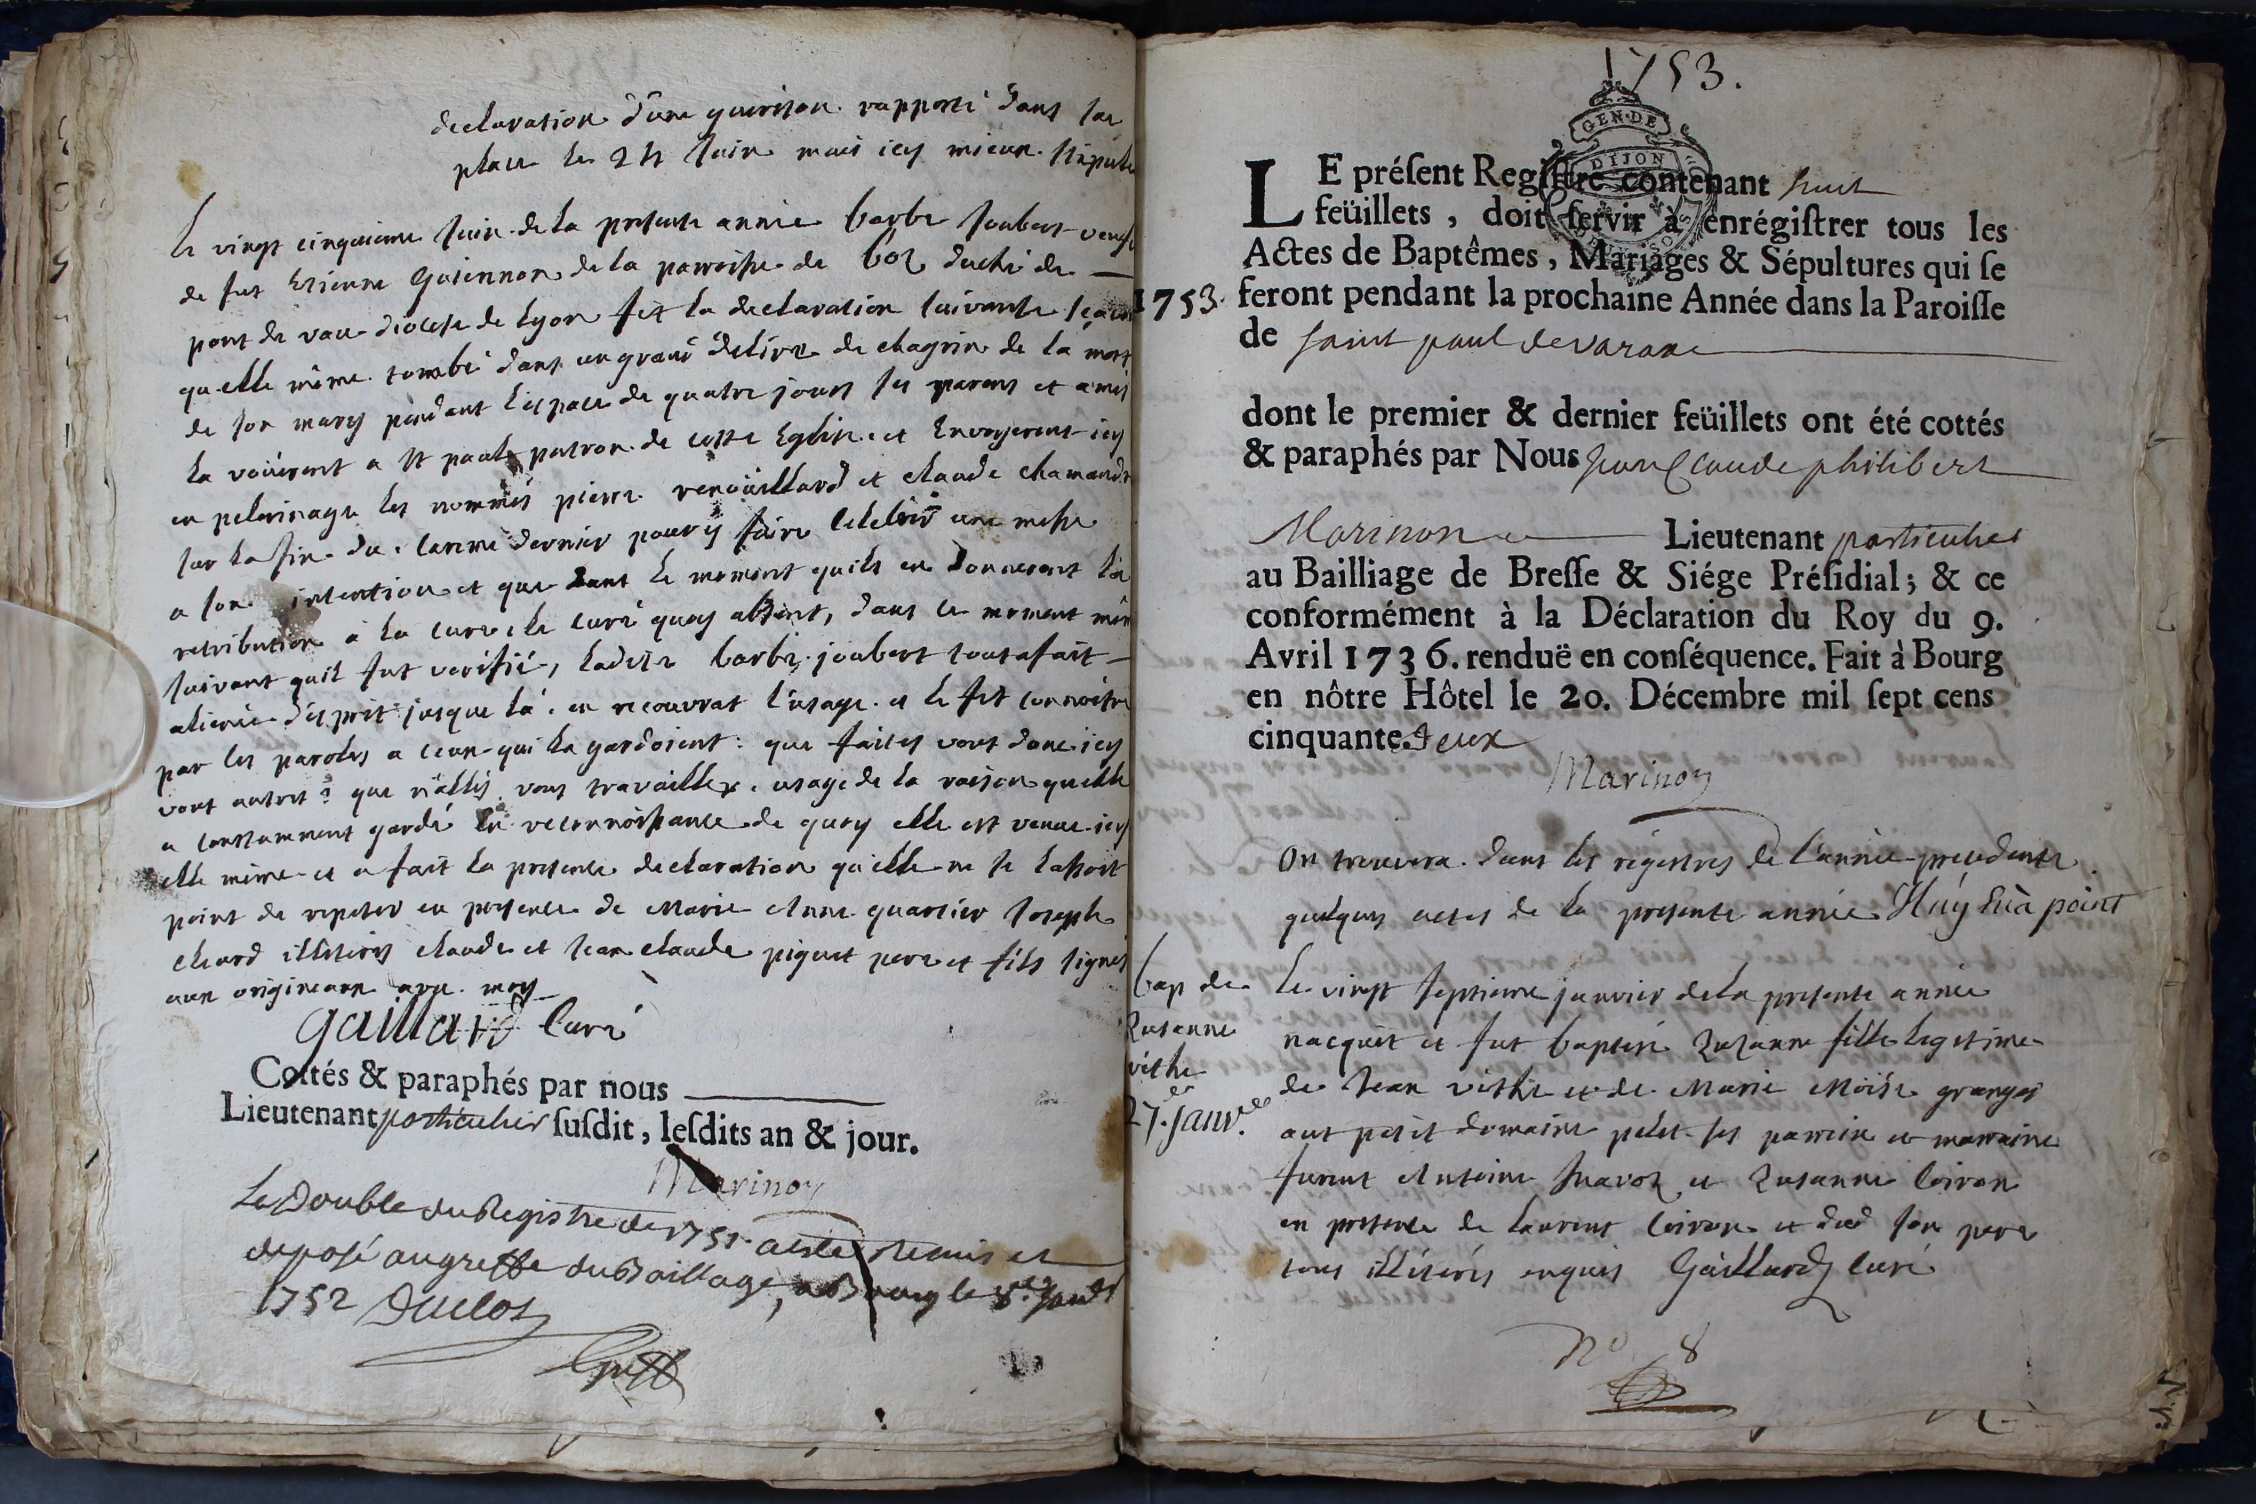 declaration d'une guerison rapporté dans sa
place le 24 Juin mais icy mieux
le vingt cinquieme Juin de la presente année barbe Joubert veufve
de fut Etienne Guiennon de la parroisse de boz duché de
pont de vaux diocese de Lyon fit la declaration suivante
qu elle même tombé dans un grand délire de chagrin de la mort
de son mary pendant l'espace de quatre jours ses parens et amis
la voüerent a st paul patron de cette Eglise et Envoyerent icy
en pelerinage les nommés pierre renoüillard et claude chamandr
sur la fin du careme dernier pour y faire celebrer une messe
a son intention et que dans le moment quils en donnerent la
retribution à la cure, le curé quoy absent, dans ce moment mêm
suivant quil fut verifié, ladite barbe joubert tout a fait
alienée d'esprit jusque là en recouvrat l'usage et le fit connoitre
par ses paroles a ceux qui la gardoient: que faites vous donc icy
vous autres? que n'allés vous travailler. usage de la raison quelle
a constamment gardé en reconnoissance de quoy elle est venue icy
elle même et a fait la presente declaration qu'elle ne se lassoit
point de repeter en presence de Marie Anne quartier Joseph
chard illiterés claude et Jean claude piguet pere et fils signés
aux origineaux avec moy
gaillard Curé
Cottés & paraphés par nous
Lieutenant particulier susdit, lesdits an & jour.
Marinon
Le Double du Registre de 1751 a esté Remis et
deposé au greffe du Baillage, a Bourg le 8e Janvr
1752 Duclos
Greff
1753.
GEN. DE
DIJON
LE présent Registre contenant huit
feüillets, doit servir à enrégistrer tous les
Actes de Baptêmes, Mariages & Sépultures qui se
1753. feront pendant la prochaine Année dans la Paroisse
de saint paul de varax
dont le premier & dernier feüillets ont été cottés
& paraphés par Nous Jean Claude philibert
Marinon Lieutenant particulier
au Bailliage de Bresse & Siége Présidial; & ce
conformément à la Déclaration du Roy du 9.
Avril 1736. renduë en conséquence. Fait à Bourg
en nôtre Hôtel le 20. Décembre mil sept cens
cinquante. deux
Marinon
On trouvera dans les régistres de l'année precedente
quelques actes de la presente année
bap de
Zusanne
vithe
27. Janv.
le vingt septieme janvier de la presente année
nacquit et fut baptisé Zuzanne fille legitime
de Jean vithe et de Marie Moise granger
aut petit domaine pelet ses parrein et marraine
furent Antoine Juaron et Zusanne Coiron
en presence de Laurent Coiron et dud son pere
tous illiterés enquis Gaillard curé
No 8